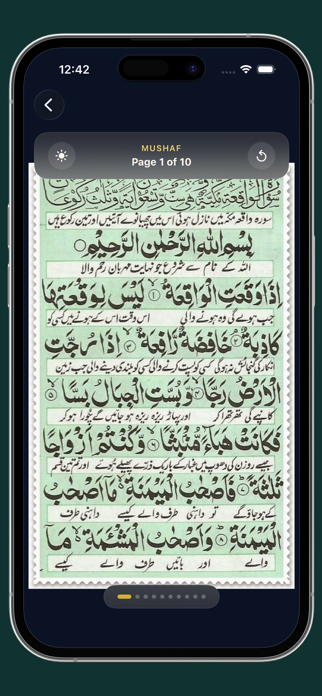 12:42
MUSHAF
Page 1 of 10
سورہ واقعہ مکہ میں نازل ہوئی اس میں چھیانوے آیتیں اور تین رکوع ہیں
بِسْمِ اللهِ الرَّحْمٰنِ الرَّحِيْمِ
اللہ کے نام سے شروع جو نہایت مہربان رحم والا
اِذَا وَقَعَتِ الْوَاقِعَةُ ۙ۱ لَيْسَ لِوَقْعَتِهَا
جب ہولے گی وہ ہونے والی اس وقت اس کے ہونے میں کسی کو
كَاذِبَةٌ ۘ۲ خَافِضَةٌ رَّافِعَةٌ ۙ۳ اِذَا رُجَّتِ
انکار کی گنجائش نہ ہوگی کسی کو پست کرنے والی کسی کو بلندی دینے والی جب زمین
الْاَرْضُ رَجًّا ۙ۴ وَّبُسَّتِ الْجِبَالُ بَسًّا ۙ۵
کانپے گی تھرتھرا کر اور پہاڑ ریزہ ریزہ ہو جائیں گے چورا ہو کر
فَكَانَتْ هَبَآءً مُّنْۢبَثًّا ۙ۶ وَّكُنْتُمْ اَزْوَاجًا
جیسے روزن کی دھوپ میں غبار کے باریک ذرے پھیلے ہوئے اور تم تین قسم
ثَلٰثَةً ؕ۷ فَاَصْحٰبُ الْمَيْمَنَةِ ۙ۬ مَاۤ اَصْحٰبُ
کے ہو جاؤ گے تو داہنی طرف والے کیسے داہنی طرف
الْمَيْمَنَةِ ؕ۸ وَاَصْحٰبُ الْمَشْـَٔمَةِ ۙ۬ مَاۤ
والے اور بائیں طرف والے کیسے